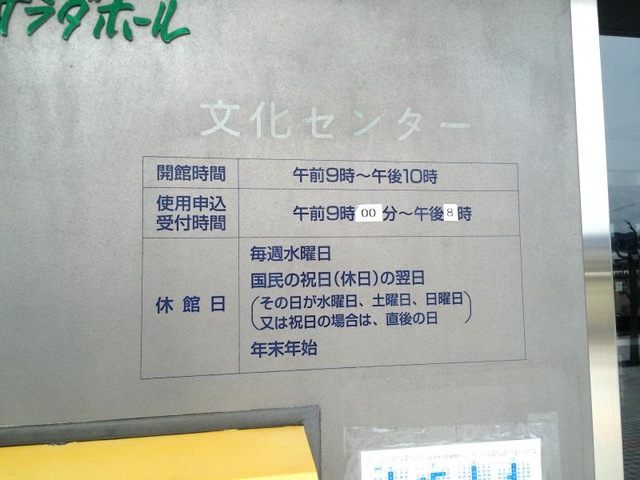 サラダホール
文化センター
開館時間 午前9時～午後10時
使用申込
受付時間
午前9時00分～午後8時
休館日
毎週水曜日
国民の祝日(休日)の翌日
(その日が水曜日、土曜日、日曜日
又は祝日の場合は、直後の日)
年末年始